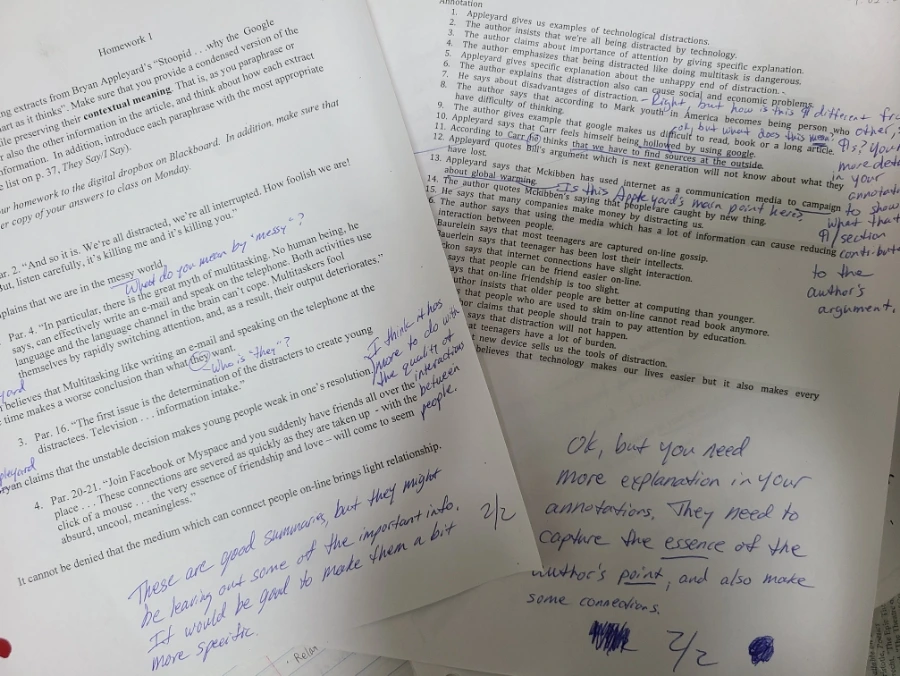 Homework 1
ng extracts from Bryan Appleyard's "Stoopid . . . why the Google
art as it thinks". Make sure that you provide a condensed version of the
ile preserving their contextual meaning. That is, as you paraphrase or
r also the other information in the article, and think about how each extract
nformation. In addition, introduce each paraphrase with the most appropriate
e list on p. 37, They Say/I Say).
ur homework to the digital dropbox on Blackboard. In addition, make sure that
er copy of your answers to class on Monday.
ar. 2. "And so it is. We're all distracted, we're all interrupted. How foolish we are!
ut, listen carefully, it's killing me and it's killing you."
plains that we are in the messy world.
What do you mean by "messy"?
Par. 4. "In particular, there is the great myth of multitasking. No human being, he
says, can effectively write an e-mail and speak on the telephone. Both activities use
language and the language channel in the brain can't cope. Multitaskers fool
themselves by rapidly switching attention, and, as a result, their output deteriorates."
yard
n believes that Multitasking like writing an e-mail and speaking on the telephone at the
time makes a worse conclusion than what they want.
Who is "they"?
3. Par. 16. "The first issue is the determination of the distracters to create young
distractees. Television . . . information intake."
ppleyard
ryan claims that the unstable decision makes young people weak in one's resolution.
I think it has
more to do with
the quality of
interactions
between
people.
4. Par. 20-21. "Join Facebook or Myspace and you suddenly have friends all over the
place . . . These connections are severed as quickly as they are taken up - with the
click of a mouse . . . the very essence of friendship and love – will come to seem
absurd, uncool, meaningless."
It cannot be denied that the medium which can connect people on-line brings light relationship.
These are good summaries, but they might
be leaving out some of the important info.
It would be good to make them a bit
more specific.
2/2
Relan
Annotation
1. Appleyard gives us examples of technological distractions.
2. The author insists that we're all being distracted by technology.
3. The author claims about importance of attention by giving specific explanation.
4. The author emphasizes that being distracted like doing multitask is dangerous.
5. Appleyard gives specific explanation about the unhappy end of distraction.
6. The author explains that distraction also can cause social and economic problems.
7. He says about disadvantages of distraction.
Right, but how is this ¶ different fro
other ¶s? Your
8. The author says that according to Mark youth in America becomes being person who
have difficulty of thinking.
9. The author gives example that google makes us difficult to read, book or a long article.
ok, but what does this mean?
10. Appleyard says that Carr feels himself being hollowed by using google.
11. According to Carr, he thinks that we have to find sources at the outside.
12. Appleyard quotes Bill's argument which is next generation will not know about what they
have lost.
13. Appleyard says that Mckibben has used internet as a communication media to campaign
about global warming.
Is this Appleyard's main point here?
14. The author quotes Mckibben's saying that people are caught by new thing.
15. He says that many companies make money by distracting us.
6. The author says that using the media which has a lot of information can cause reducing
interaction between people.
Baurelein says that most teenagers are captured on-line gossip.
auerlein says that teenager has been lost their intellects.
ckon says that internet connections have slight interaction.
ays that people can be friend easier on-line.
ays that on-line friendship is too slight.
uthor insists that older people are better at computing than younger.
s that people who are used to skim on-line cannot read book anymore.
or claims that people should train to pay attention by education.
says that distraction will not happen.
t teenagers have a lot of burden.
new device sells us the tools of distraction.
believes that technology makes our lives easier but it also makes every
more deta
in your
annotatio
to show
what that
¶/section
contribute
to the
author's
argument.
Ok, but you need
more explanation in your
annotations. They need to
capture the essence of the
author's point, and also make
some connections.
2/2